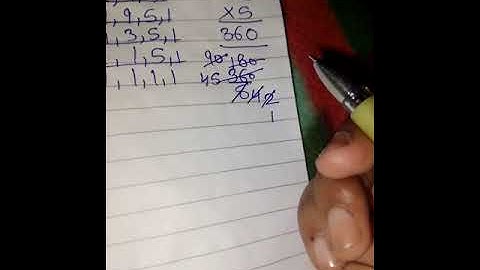 , 9, 5, 1 X5
, 3, 5, 1 360
, 1, 5, 1 90 180
, 1, 1, 1 45 360
8 4 2
1